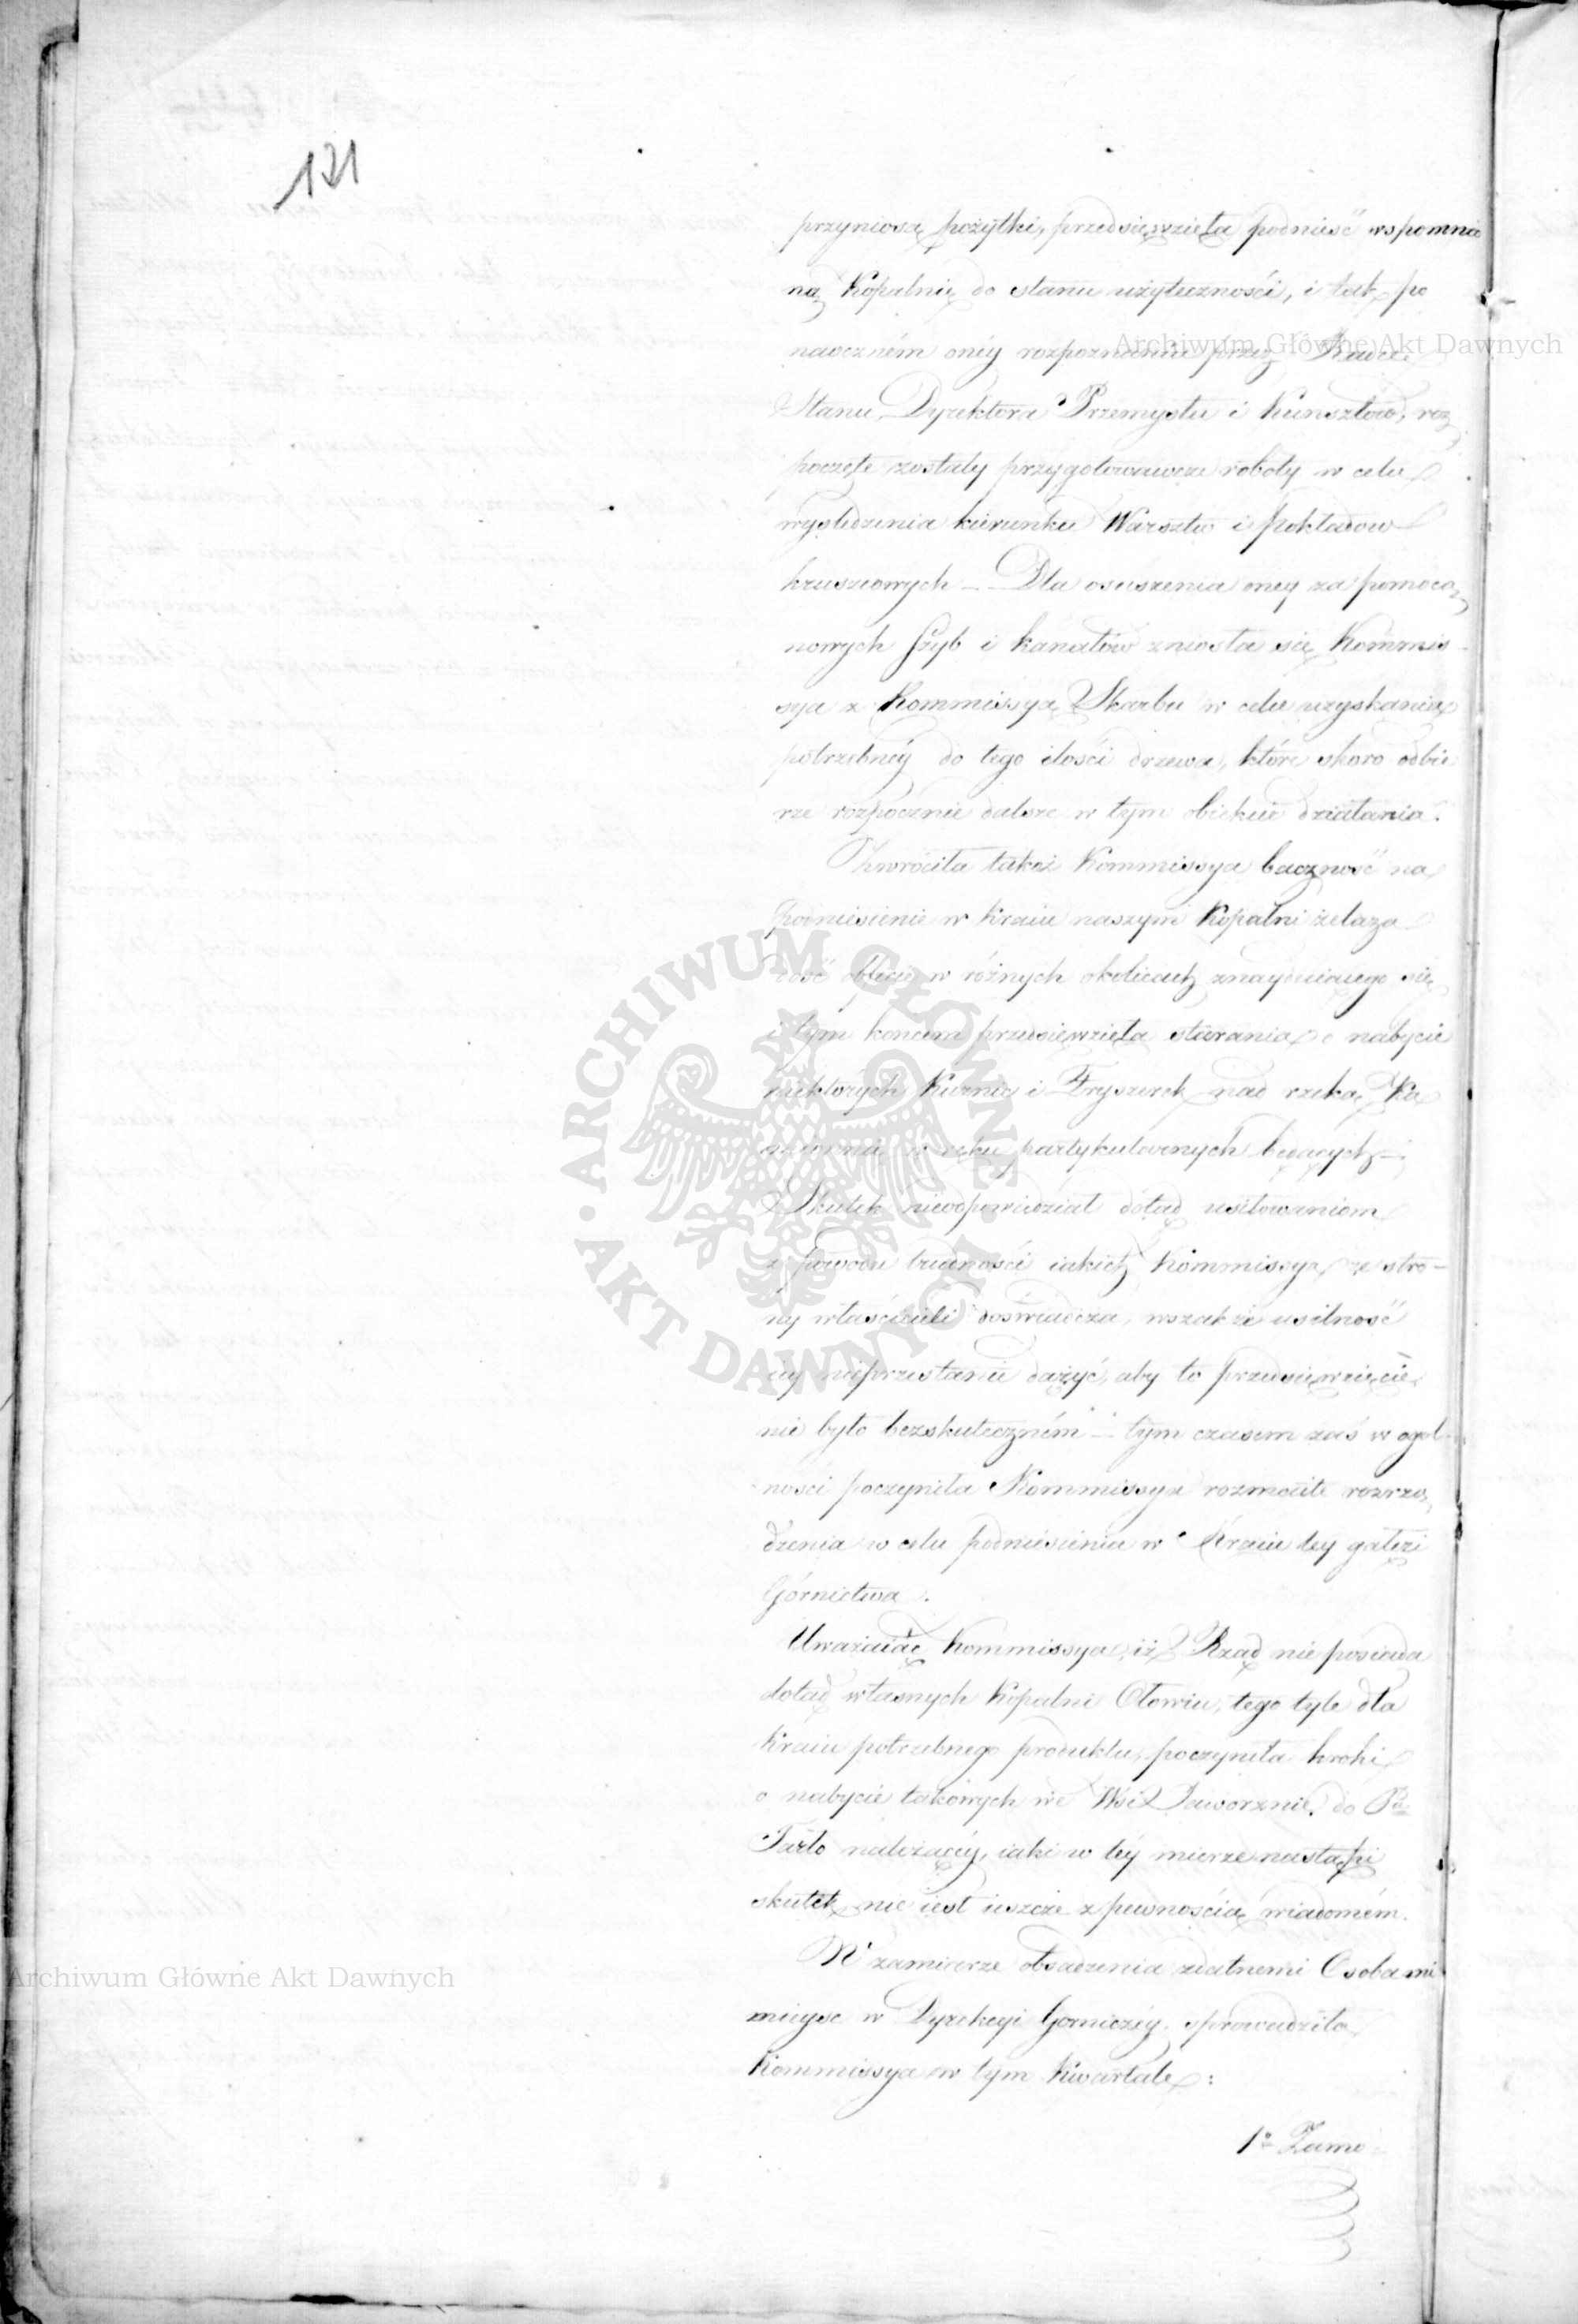 131
przyniosą pożytki, przedsięwzięła podnieść wspomnio
ną Kopalnię do stanu użyteczności, i tak po
naoczném onéy rozpoznaniu przez Radcę
Archiwum Główne Akt Dawnych
Stanu, Dyrektora Przemysłu i Kunsztów, roz
poczęte zostały przygotowawcze roboty w celu
wyśledzenia kierunku Warsztw i pokładow
kruszcowych — Dla osuszenia oney za pomocą
nowych Szyb i kanałów zniosła się Kommis-
sya z Kommissyą Skarbu w celu uzyskania
potrzebnéy do tego ilości drzewa, które skoro odbie
rze rozpocznie dalsze w tym obiekcie działania.
Zwróciła także Kommissya baczność na
podniesienie w Kraiu naszym Kopalni żelaza
dość obficie w różnych okolicach znayduiącego się
i tym koncem przedsięwzięła starania o nabycie
niektórych Kuźnic i Fryszerek nad rzeką Ka
mienną w ręku partykularnych będących —
Skutek nieodpowiedział dotąd usiłowaniom
z powodu trudności iakich Kommissya ze stro-
ny właścicieli doświadcza, wszakże usilność
iey nieprzestanie dążyć, aby to przedsięwzięcie
nie było bezskuteczném — tym czasem zaś w ogól-
ności poczyniła Kommissya rozmaite rozrzą
dzenia w celu podniesienia w Kraiu tey gałęzi
Górnictwa.
Uważaiąc Kommissya, iż Rząd nie posiada
dotąd własnych Kopalni Ołowiu, tego tyle dla
Kraiu potrzebnego produktu, poczyniła kroki
o nabycie takowych we Wsi Jaworznie, do P.
Tarło należącéy, iaki w téy mierze nastąpi
skutek nie iest ieszcze z pewnością wiadomém.
W zamiarze obsadzenia zdatnemi Osobami
Archiwum Główne Akt Dawnych
mieysc w Dyrekcyi Gorniczéy, sprowadziła
Kommissya w tym Kwartale:
1o
ARCHIWUM GŁÓWNE • AKT DAWNYCH •